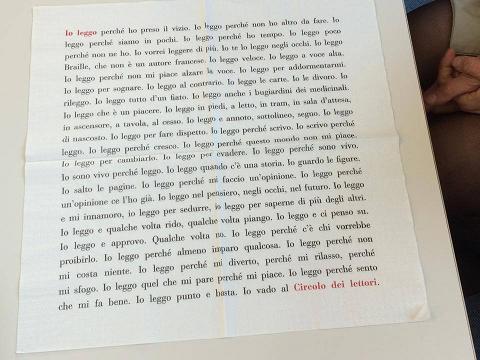 Io leggo perché ho preso il vizio. Io leggo perché non ho altro da fare. Io
leggo perché siamo in pochi. Io leggo perché ho tempo. Io leggo poco
perché non ne ho. Io vorrei leggere di più. Io te lo leggo negli occhi. Io leggo
Braille, che non è un autore francese. Io leggo veloce. Io leggo a voce alta.
Io leggo perché non mi piace alzare la voce. Io leggo per addormentarmi.
Io leggo per sognare. Io leggo al contrario. Io leggo le carte. Io le divoro. Io
rileggo. Io leggo tutto d'un fiato. Io leggo anche i bugiardini dei medicinali.
Io leggo che è un piacere. Io leggo in piedi, a letto, in tram, in sala d'attesa,
in ascensore, a tavola, al cesso. Io leggo e annoto, sottolineo, segno. Io leggo
di nascosto. Io leggo per fare dispetto. Io leggo perché scrivo. Io scrivo perché
leggo. Io leggo perché cresco. Io leggo perché questo mondo non mi piace.
Io leggo per cambiarlo. Io leggo per evadere. Io leggo perché sono vivo.
Io sono vivo perché leggo. Io leggo quando c'è una storia. Io guardo le figure.
Io salto le pagine. Io leggo perché mi faccio un'opinione. Io leggo perché
un'opinione ce l'ho già. Io leggo nel pensiero, negli occhi, nel futuro. Io leggo
e mi innamoro, io leggo per sedurre, io leggo per saperne di più degli altri.
Io leggo e qualche volta rido, qualche volta piango. Io leggo e ci penso su.
Io leggo e approvo. Qualche volta no. Io leggo perché c'è chi vorrebbe
proibirlo. Io leggo perché almeno imparo qualcosa. Io leggo perché non
mi costa niente. Io leggo perché mi diverto, perché mi rilasso, perché
mi sfogo. Io leggo quel che mi pare perché mi piace. Io leggo perché sento
che mi fa bene. Io leggo punto e basta. Io vado al Circolo dei lettori.